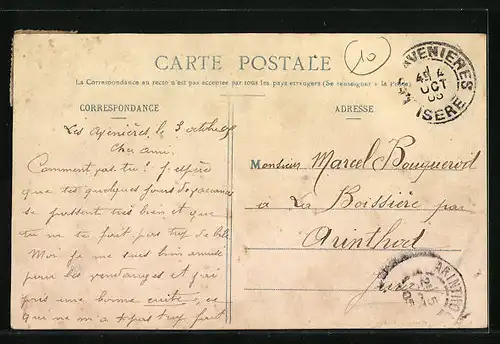 CARTE POSTALE
10
La Correspondance au recto n'est pas acceptée par tous les pays étrangers (Se renseigner à la Poste)
CORRESPONDANCE
ADRESSE
Les Avenières, le 3 octobre
Cher ami.
Comment vas-tu ? J'espère
que tes quelques jours de vacances
se passent très bien et que
tu ne te fait pas trop de bile
Moi je me suis bien amusé
pour les vendanges et j'ai
pris une bonne cuite, ce
qui ne m'a pas trop fait
Monsieur Marcel
à La Boissière par
Arinthod
Jura
AVENIERES
4
OCT
ISERE
ARINTHOD